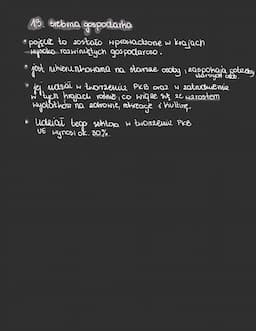 19. srebrna gospodarka
• pojęcie to zostało wprowadzone w krajach
wysoko rozwiniętych gospodarczo.
• jest ukierunkowana na starsze osoby i zaspokaja potrzeby
starszych osób.
• jej udział w tworzeniu PKB oraz w zatrudnienie
w tych krajach rośnie, co wiąże się ze wzrostem
wydatków na zdrowie, rekreację i kulturę.
• Udział tego sektora w tworzeniu PKB
UE wynosi ok. 30%.